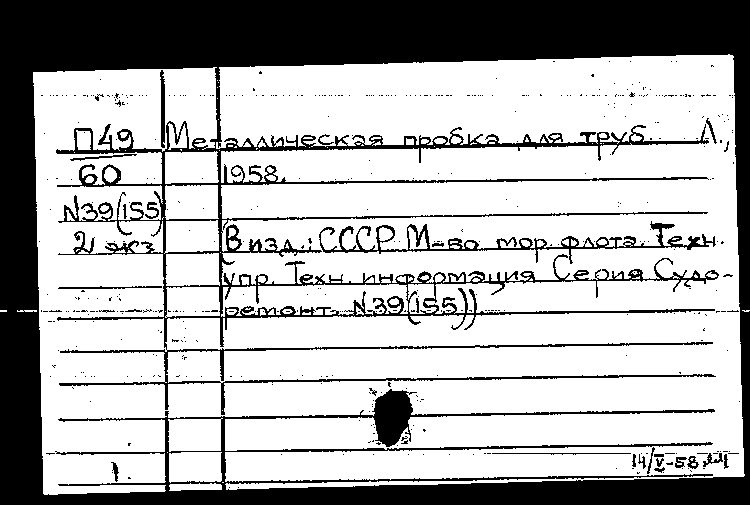 П49 Металлическая пробка для труб. Л.,
60 1958.
N39(155)
2 экз (В изд.: СССР. М-во мор. флота. Техн.
упр. Техн. информация Серия Судо-
ремонт. N39(155)).
1. 14/V-58